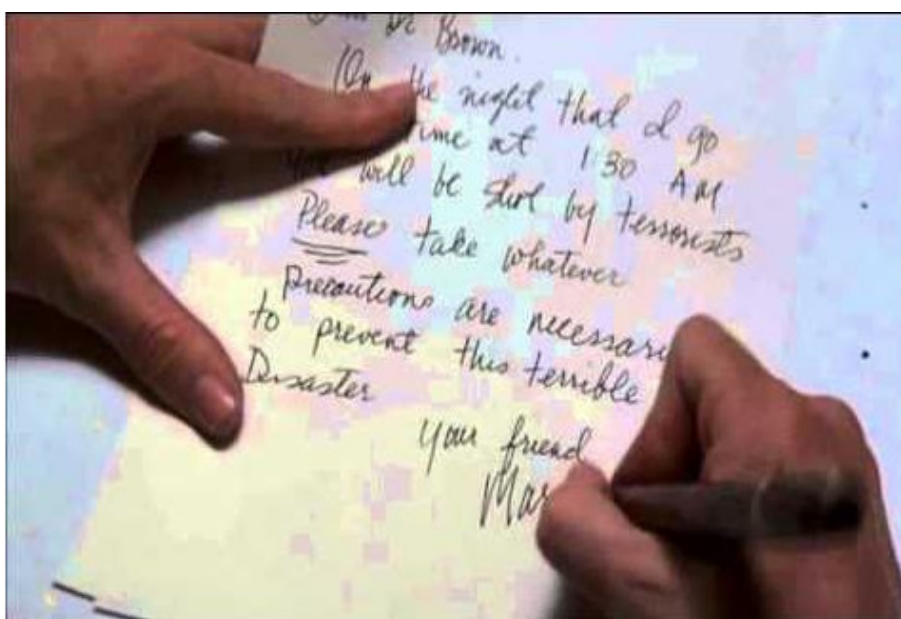 Dr Brown.
On the night that I go
time at 1:30 AM
will be shot by terrorists
Please take whatever
precautions are necessary
to prevent this terrible
Disaster
Your friend
Mar